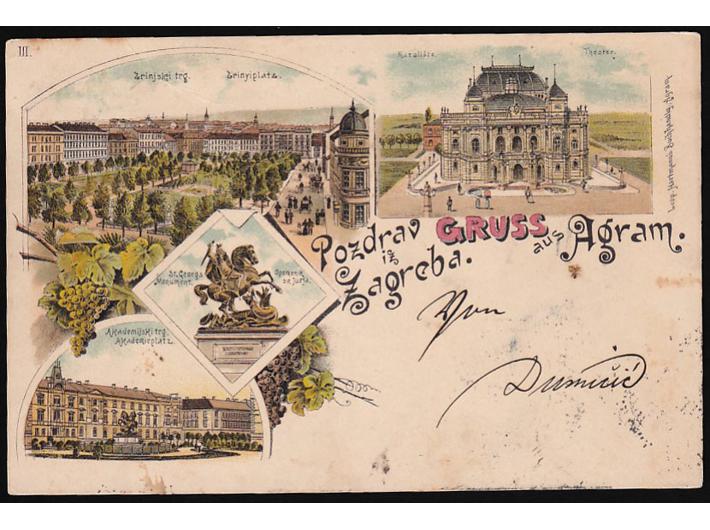 III.
Zrinjski trg. Zrinyiplatz.
Kazalište. Theater.
Pozdrav GRUSS
iz aus Agram.
Zagreba.
St. Georgs Spomenik
Monument. sv. Jurja.
Akademijski trg.
Akademieplatz.
Von
Dumičić